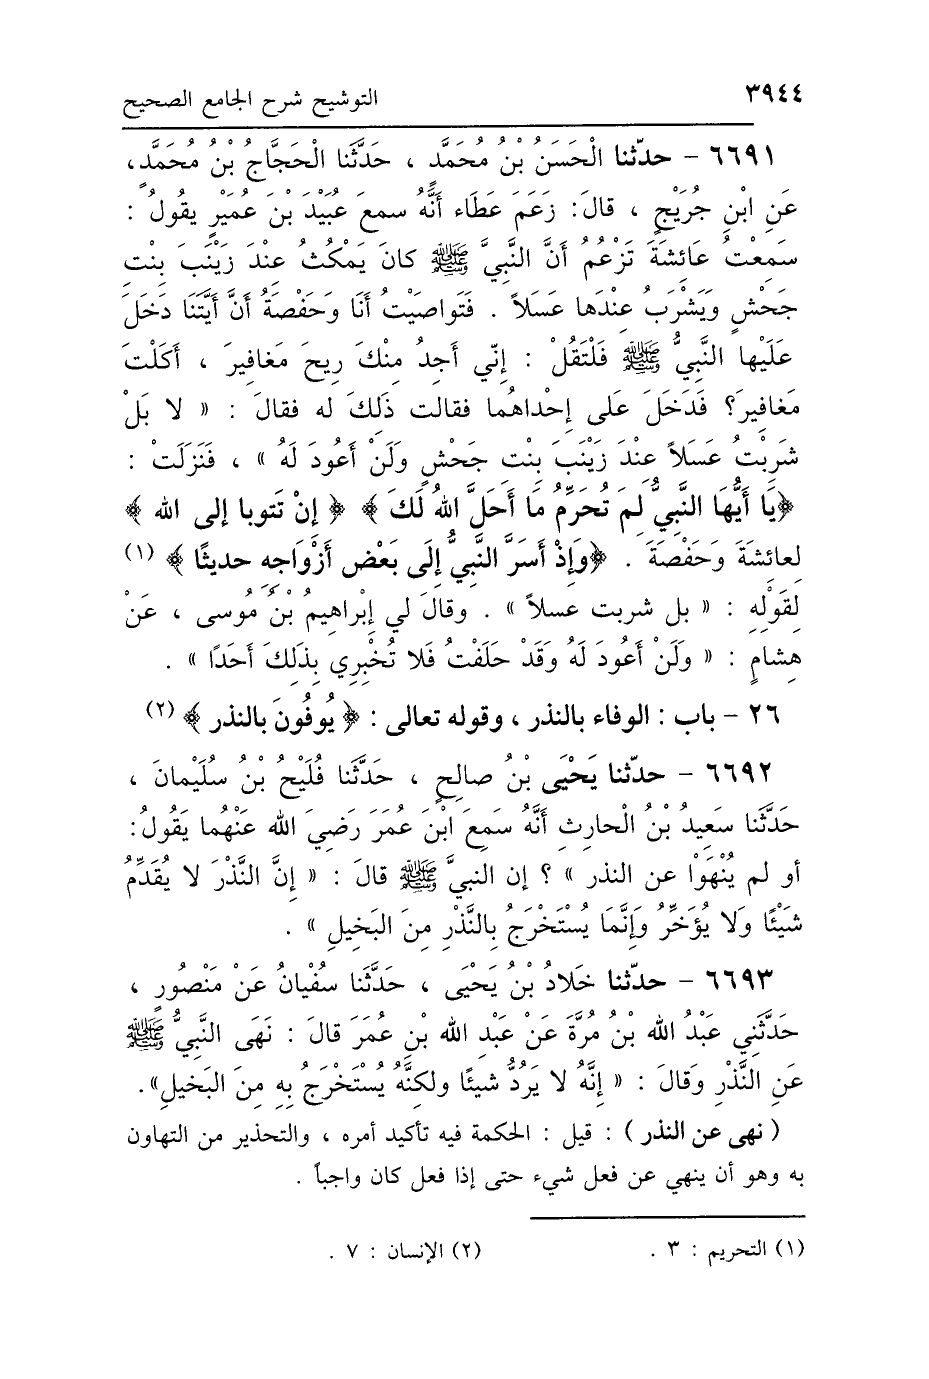 ٣٩٤٤ التوشيح شرح الجامع الصحيح
٦٦٩١ - حدّثنا الْحَسَنُ بْنُ مُحَمَّدٍ ، حَدَّثَنَا الْحَجَّاجُ بْنُ مُحَمَّدٍ،
عَنِ ابْنِ جُرَيْجٍ ، قالَ: زَعَمَ عَطَاء أَنَّهُ سمعَ عُبَيْدَ بْنَ عُمَيْرٍ يقُولُ :
سَمِعْتُ عائشَةَ تَزْعُمُ أَنَّ النَّبيَّ ﷺ كانَ يَمْكُثُ عِنْدَ زَيْنَبَ بِنْتِ
جَحْشٍ وَيَشْرَبُ عِنْدَها عَسَلاً . فَتَواصَيْتُ أَنَا وَحَفْصَةُ أَنَّ أَيَّتَنَا دَخَلَ
عَلَيْها النَّبِيُّ ﷺ فَلْتَقُلْ : إنّي أَجِدُ مِنْكَ رِيحَ مَغافِيرَ ، أَكَلْتَ
مَغافِيرَ؟ فَدَخَلَ عَلى إحْداهُما فقالت ذَلِكَ له فقالَ : « لا بَلْ
شَرِبْتُ عَسَلاً عِنْدَ زَيْنَبَ بِنْتِ جَحْشٍ ولَنْ أَعُودَ لَهُ » ، فَنَزَلَتْ :
﴿يَا أَيُّهَا النَّبِيُّ لِمَ تُحَرِّمُ مَا أَحَلَّ اللهُ لَكَ ﴾ ﴿ إِنْ تَتوبا إلى الله ﴾
لعائشَةَ وَحَفْصَةَ . ﴿وَإذْ أسَرَّ النَّبيُّ إلَى بَعْضِ أزْوَاجِهِ حديثًا ﴾ (١)
لِقَوْلِهِ : « بل شربت عسلاً » . وقالَ لي إبْراهِيمُ بْنُ مُوسى ، عَنْ
هِشامٍ : « ولَنْ أعُودَ لَهُ وَقَدْ حَلَفْتُ فَلا تُخْبِرِي بِذَلِكَ أحَدًا » .
٢٦ - باب : الوفاء بالنذر ، وقوله تعالى : ﴿ يُوفُونَ بالنذر ﴾ (٢)
٦٦٩٢ - حدّثنا يَحْيَى بْنُ صالِحٍ ، حَدَّثَنَا فُلَيْحُ بْنُ سُلَيْمانَ ،
حَدَّثَنَا سَعِيدُ بْنُ الْحارِثِ أنَّهُ سَمِعَ ابْنَ عُمَرَ رَضِيَ الله عَنْهُما يَقُولُ:
أو لم يُنْهَوْا عن النذر » ؟ إن النبيَّ ﷺ قالَ : « إنَّ النَّذْرَ لا يُقَدِّمُ
شَيْئًا وَلا يُؤَخِّرُ وَإنَّمَا يُسْتَخْرَجُ بِالنَّذْرِ مِنَ البَخِيلِ » .
٦٦٩٣ - حدّثنا خَلادُ بْنُ يَحْيَى ، حَدَّثَنَا سُفْيانُ عَنْ مَنْصُورٍ ،
حَدَّثَنِي عَبْدُ الله بْنُ مُرَّةَ عَنْ عَبْدِ الله بْنِ عُمَرَ قالَ : نَهَى النَّبِيُّ ﷺ
عَنِ النَّذْرِ وَقَالَ : « إنَّهُ لا يَرُدُّ شيئًا ولكنَّهُ يُسْتَخْرَجُ بِهِ مِنَ البَخيلِ».
( نهى عن النذر ) : قيل : الحكمة فيه تأكيد أمره ، والتحذير من التهاون
به وهو أن ينهي عن فعل شيء حتى إذا فعل كان واجباً .
(١) التحريم : ٣ . (٢) الإنسان : ٧ .